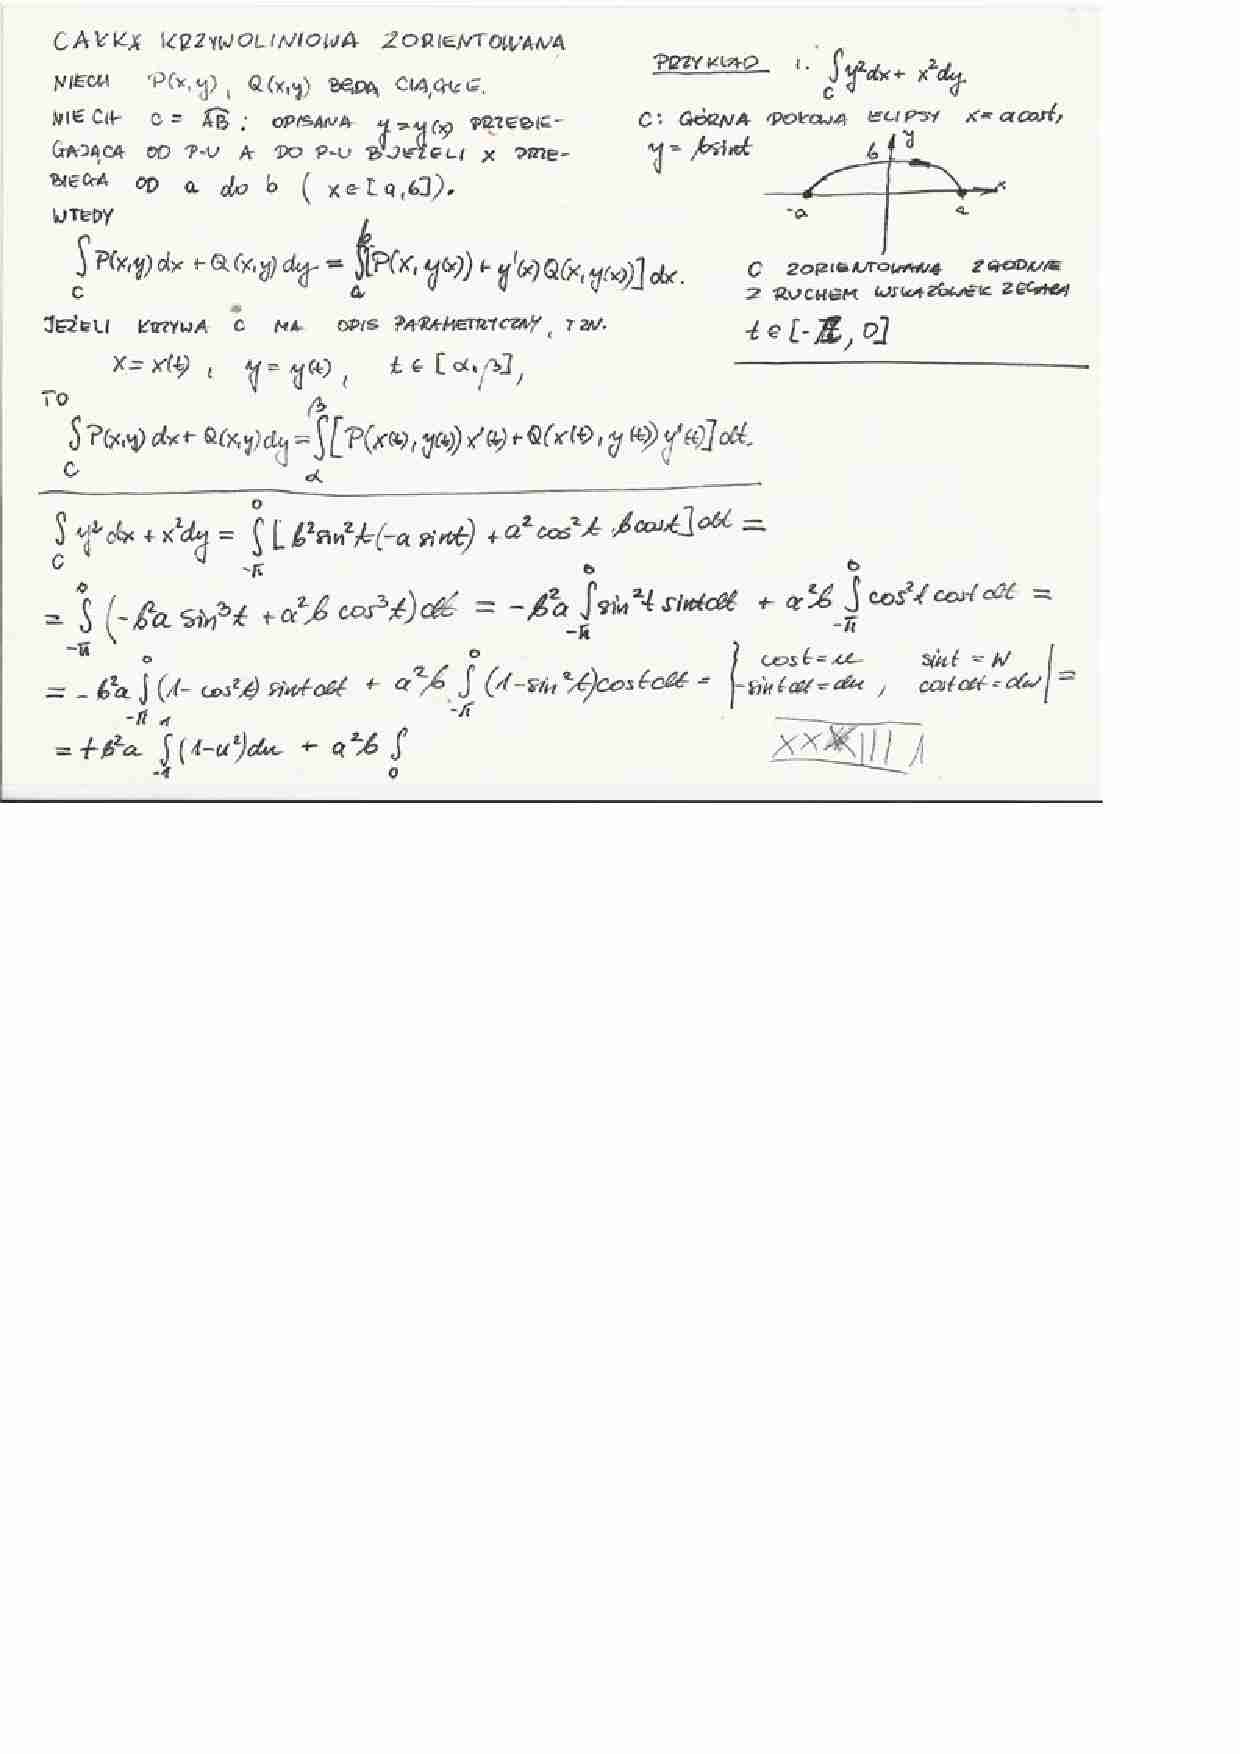 CAŁKA KRZYWOLINIOWA ZORIENTOWANA
NIECH P(x,y), Q(x,y) BĘDĄ CIĄGŁE.
NIECH C = AB : OPISANA y=y(x) PRZEBIE-
GAJĄCA OD P-U A DO P-U B JEŻELI x PRZE-
BIEGA OD a do b ( x∈[a,b]).
WTEDY
∫_C P(x,y)dx + Q(x,y)dy = ∫_a^b [P(x, y(x)) + y'(x)Q(x,y(x))]dx.
JEŻELI KRZYWA C MA OPIS PARAMETRYCZNY, TZN.
x = x(t), y = y(t), t ∈ [α,β],
TO
∫_C P(x,y)dx + Q(x,y)dy = ∫_α^β [P(x(t), y(t))x'(t) + Q(x(t), y(t))y'(t)]dt.
PRZYKŁAD 1. ∫_C y²dx + x²dy.
C: GÓRNA POŁOWA ELIPSY x = a cost,
y = b sint
b y
x
-a a
C ZORIENTOWANA ZGODNIE
Z RUCHEM WSKAZÓWEK ZEGARA
t ∈ [-π, 0]
∫_C y²dx + x²dy = ∫_{-π}^0 [b²sin²t(-a sint) + a²cos²t · b cost]dt =
= ∫_{-π}^0 (-b²a sin³t + a²b cos³t)dt = -b²a ∫_{-π}^0 sin²t sint dt + a²b ∫_{-π}^0 cos²t cost dt =
= -b²a ∫_{-π}^0 (1-cos²t) sint dt + a²b ∫_{-π}^0 (1-sin²t)cost dt = | cost = u sint = w
-sint dt = du, cost dt = dw | =
= +b²a ∫_{-1}^1 (1-u²)du + a²b ∫_0